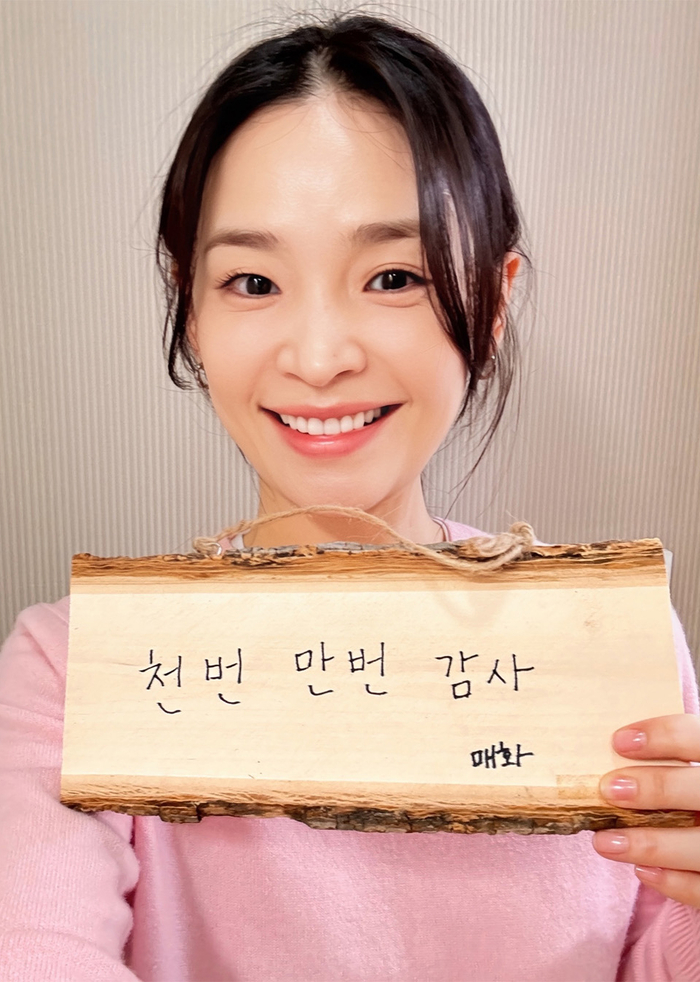 천번 만번 감사
매화